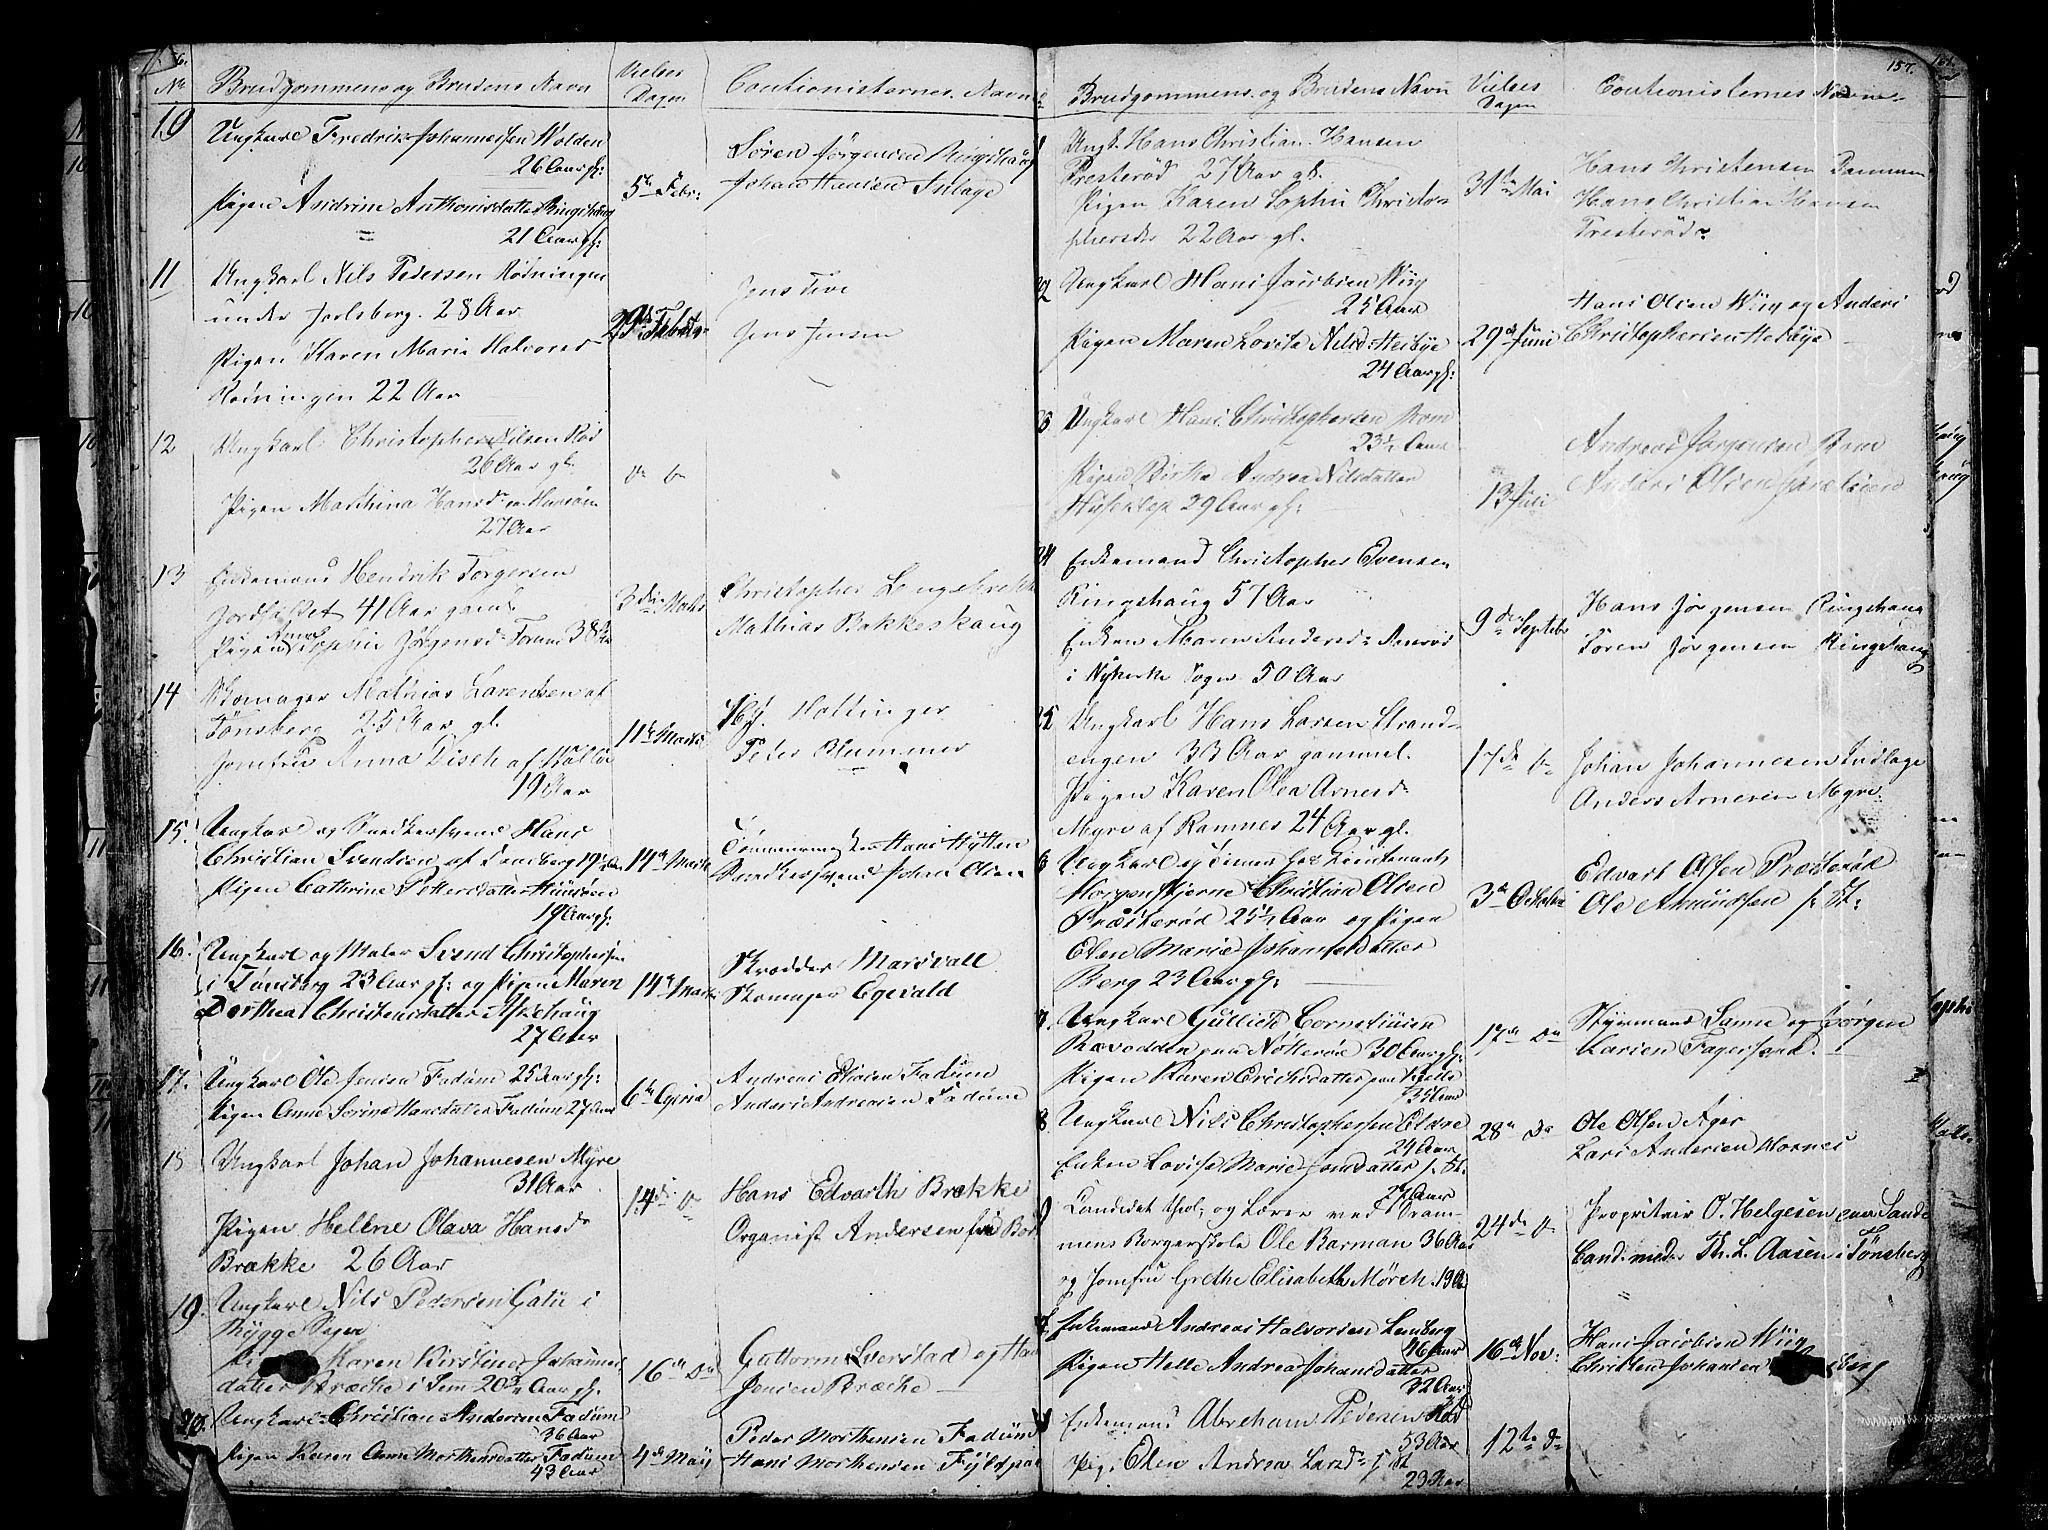 No
Brudgommens og Brudens Navn
Vielses
Dagen
Cautionisternes Navne
10
Ungkarl Fredrik Johannessen Wolden
26 Aar gl:
Pigen Andrine Anthonisdatter Ringshaug
21 Aar gl:
5te Febr:
Sören Jörgensen Ringshaug
Johan Hansen Inlage
11
Ungkarl Nils Pedersen Rødningen
under Jarlsberg. 28 Aar
Pigen Karen Marie Halvorsd
Rødningen 22 Aar
Jens Five
Jens Jensen
12
Ungkarl Christopher Nilsen Rös
26 Aar gl.
Pigen Marthina Hansdr
27 Aar
13
Enkemand Hendrik Torgersen
Jordfaldet 41 Aar gaml
Pigen Anne Sophie Jörgensd Forum 38 Aar
3die Marts
Christopher
Mathias Bakkeskaug
14
Skomager Mathias Larentsen af
Tönsberg 25 Aar gl.
Jomfru Anna Disch af
19 Aar
11te Marts
Hj. Holtinger
Peder Blummer
15.
Ungkarl og Snedkersvend Hans
Christian Svendsen af Tonsberg 19½ Aar
Pigen Cathrine Pettersdatter
19 Aar gl:
14de Marts
Hans Hytten
Snedkersvend Johan Olsen
16.
Ungkarl og Maler Svend Christophersen
i Tönsberg 23 Aar gl: og Pigen Maren
Dorthea Christensdatter Askehaug
27 Aar
14de Marts
Skrædder Marsvall
Skomager Egevald
17.
Ungkarl Ole Jensen Fadum 25 Aar gl:
Pigen Anne Sorine Hansdatter Fadum 27 Aar
6te
Andreas Olsen Fadum
Anders Andreasen Fadum
18
Ungkarl Johan Johannesen Myre
31 Aar
Pigen Hellene Olava Hansdr
Brække 26 Aar
14de
Hans Edvarth Brække
Organist Andersen fra
19.
Ungkarl Nils Pedersen Gatu i
Rygge Sogn
Karen Kirstine Johannes
datter Bræche i Sem 20¾ Aar gl.
16de Do
Guttorm Sverstad og
Jensen Bræche
20.
Ungkarl Christian Andersen Fadum
36 Aar
Pigen Karen Anne Morthensdatter Fadum
43 Aar
4de May
Peder Morthensen Fadum
Hans Morthensen
157.
Brudgommens og Brudens Navn
Vielses
Dagen
Cautionisternes Navne
Ungk. Hans Christian Hansen
Presterød 27 Aar gl.
Pigen Karen Sophie Christo-
phersdr 22 Aar gl.
31te Mai
Hans Christensen Dammen
Hans Christian Hansen
Presterød
22
Ungkarl Hans Jacobsen Wiig
25 Aar
Pigen Maren Lovise Nilsd: Heibye
24 Aar gl:
29de Juni
Hans Olsen Wiig og Anders
Christophersen Heibye
Ungkarl Hans Christophersen Rom
23½ Aar
Pigen Birthe Andrea Nilsdatter
29 Aar gl:
13 Juli
Andreas Jörgensen Rom
Anders Olsen
24
Enkemand Christopher Evensen
Ringshaug 57 Aar
Enken Maren Andersd:
i Nykirke Sogn 50 Aar
9de Septebr
Hans Jørgensen Ringshaug
Sören Jørgensen Ringshaug
25
Ungkarl Hans Larsen Strand-
engen 33 Aar gammel.
Pigen Karen Olea Arnesd.
Myre af Ramnes 24 Aar gl.
17de
Johan Johannesen Indlage
Anders Arnesen Myre
Ungkarl og Tiener hos Lieutenant
Morgenstjerne Christian Olsen
Præsterød 25½ Aar og Pigen
Elen Marie Johannesdatter
Berg 23 Aar gl:
3de October
Edvart Olsen Præsterød
Ole Amundsen
Ungkarl Gullich Cornelius­en
Ravodden paa Nötterøe 30 Aar gl:
Pigen Karen Erichsdatter paa
35 Aar
17de Do
Styrmand Lamse og Jörgen
Larsen Fagerstrand
8
Ungkarl Nils Christophersen Eldre
29 Aar
Enken Lovise Marie Jonsdatter
27 Aar
28de Do
Ole Olsen Ager
Lars Andersen Hornes
9
Candidat theol. og Lærer ved Dram-
mens Borgerskole Ole Barman 36 Aar
og Jomfru Grethe Elisabeth Mörch. 19 Aar
24de
Propritair O. Helgesen paa Sande
Cand: med: Th. L. Aasen i Tönsberg
Enkemand Andreas Halvorsen Lensberg
46 Aar
Pigen Helle Andrea Johansdatter
32 Aar
16de Nov:
Hans Jacobsen Wiig
Christen Johansen
Enkemand Abraham Pedersen Röd
53 Aar
Pig. Elen Andrea Larsdr
23 Aar
12te